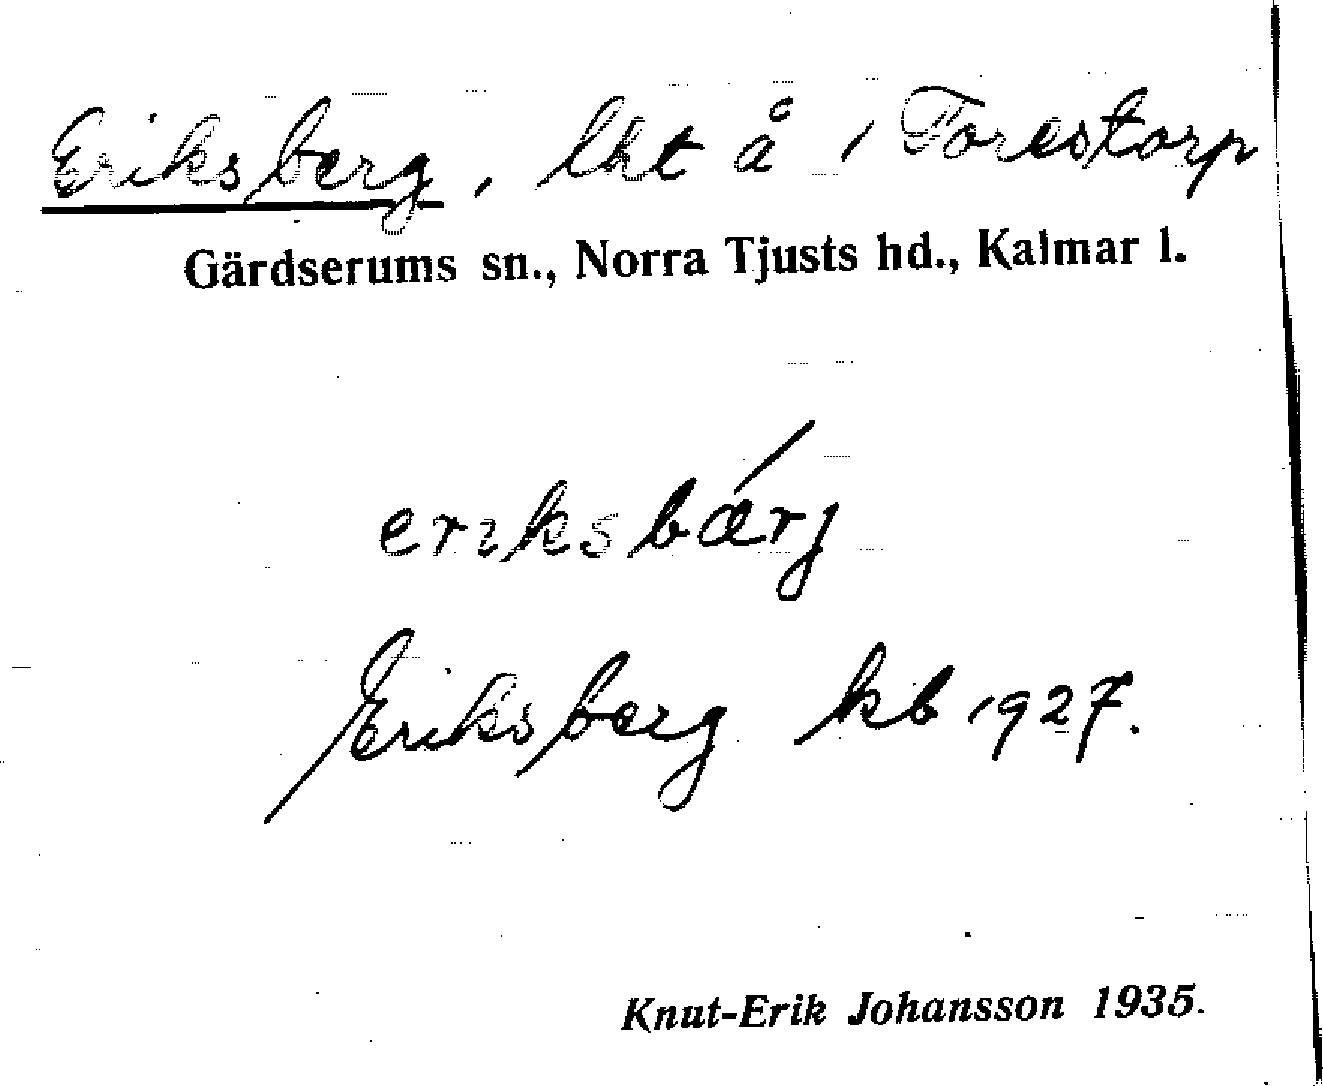 Eriksberg, lht å 1 Forestorp
Gärdserums sn., Norra Tjusts hd., Kalmar l.
eriksbærj
Eriksberg kb 1927.
Knut-Erik Johansson 1935.